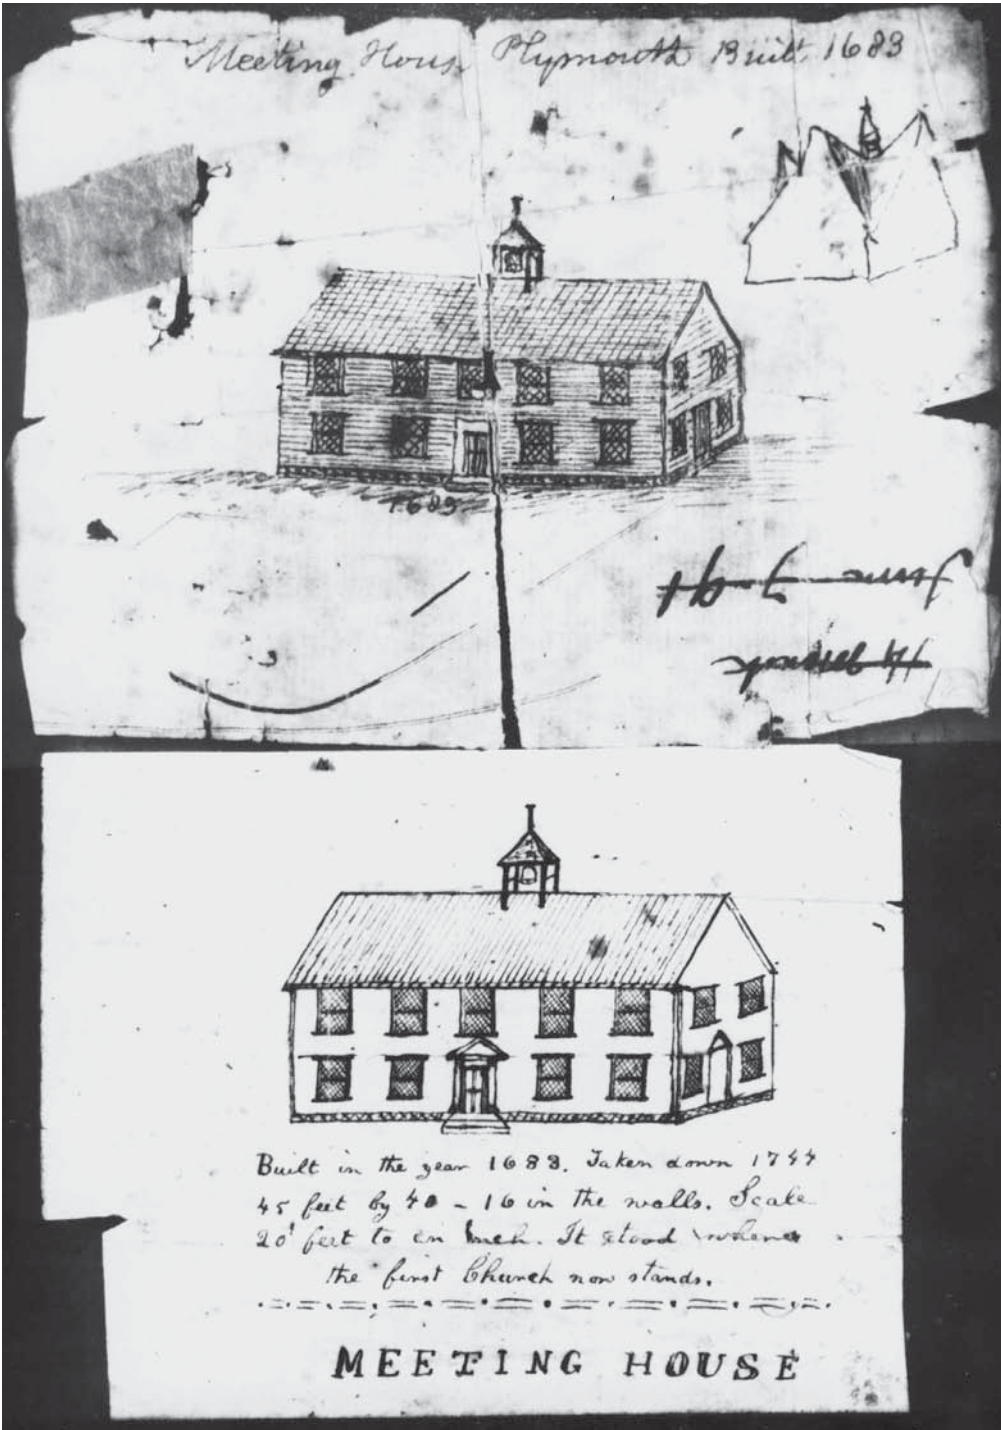 Meeting House Plymouth Built 1683
1683
June 7 91
Built in the year 1683. Taken down 1744
45 feet by 40 - 16 in the walls. Scale
20 feet to an inch. It stood where
the first Church now stands.
MEETING HOUSE